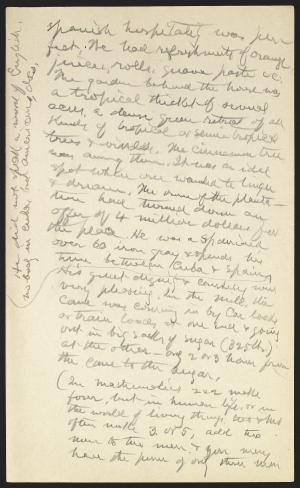 spanish hospitality was per-
fect. We had refreshments of orange
juice, rolls, guava paste etc.
The garden behind the house was
a tropical thicket of several
acres, a dense green retreat of all
kinds of tropical or semi tropical
trees & vines. The cinnamon tree
was among them. It was an ideal
spot where one wanted to linger
& dream. The owner of the planta-
tion had turned down an
offer of 4 million dollars for
the place. He was a Spaniard
over 60 iron gray & spends his
time between Cuba & Spain,
His quiet dignity & courtesy were
very pleasing. In the mill the
cane was coming in by car loads
or train loads at one end & going
out in big sacks of sugar (325 lbs)
at the other - only 2 or 3 hours from
the cane to the sugar.
(In mathematics 2x2 make
four, but in human life, or in
the world of living things, two & two
often make 3 or 5, add two
men to two men & you may
have the power of only three men
He did not speak a word of English.